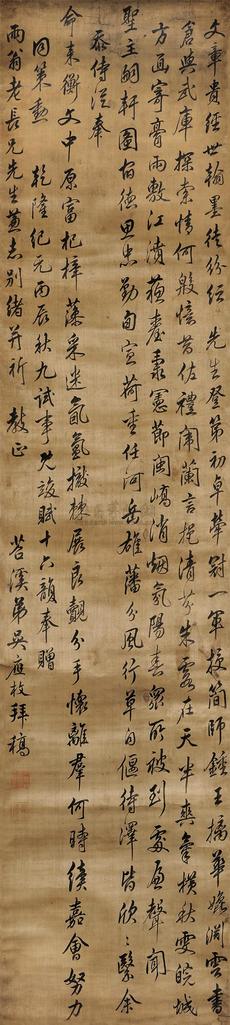 文章貴經世翰墨徒紛紜 先生登第初卓犖冠一軍授簡師鍾王摛華媲淵雲書
倉與武庫探索情何殷憶昔佐禮闈蘭言挹清芬朱霞在天半爽氣橫秋雯皖城
方面寄膏雨敷江濆蘇臺肅憲節閩嶠消煙氛陽春眾所被到處風聲聞
聖主嗣軒圖宿德思忠勤旬宣荷重任河岳雄藩分風行草自偃待澤皆欣欣繄余
忝侍從奉
命來衡文中原富杞梓藻采迷氤氳撤棘展良覿分手懷離羣何時續嘉會努力
同策勳 乾隆紀元丙辰秋九試事既竣賦十六韻奉贈
雨翁老長兄先生兼志別緒并祈 教正 苕溪弟吳應枚拜稿